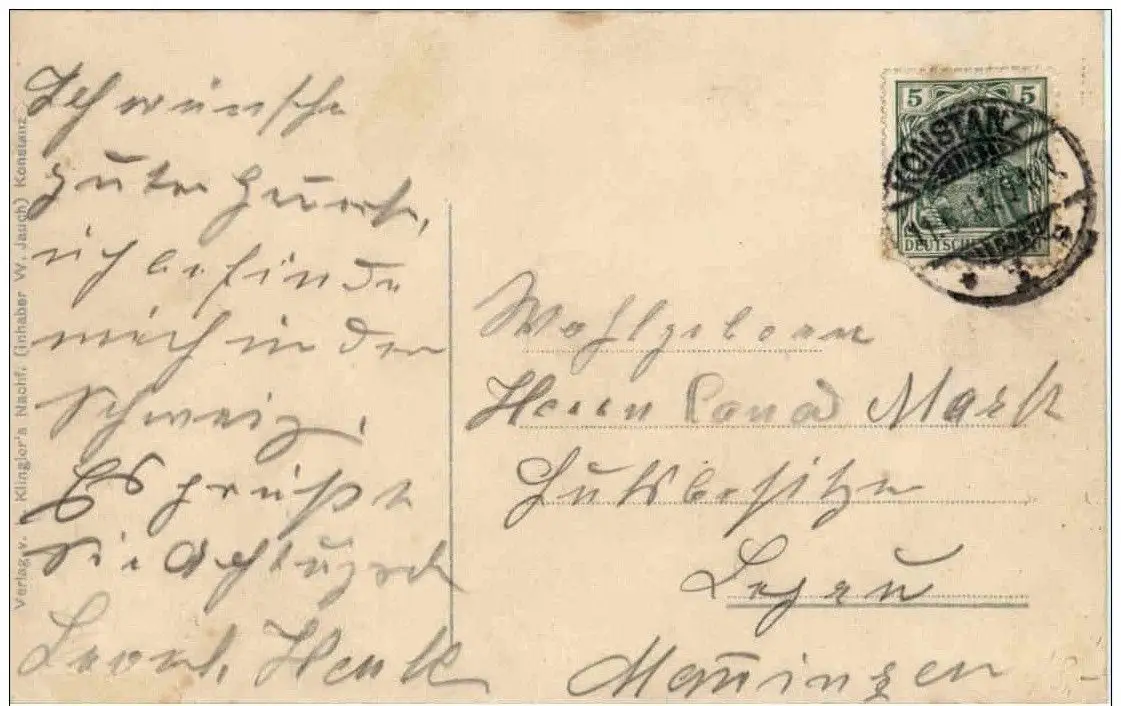 Ich wünsche
gute
ich befinde
mich in der
Schweiz,
Es grüßt
Sie Achtungsvoll
Leonh. Henk
Verlag v. Klingler's Nachf. (Inhaber W. Jauch) Konstanz
5 5
KONSTANZ
DEUTSCHES
Wohlgeboren
Herrn Conrad
Gutsbesitzer
Legau
Memmingen